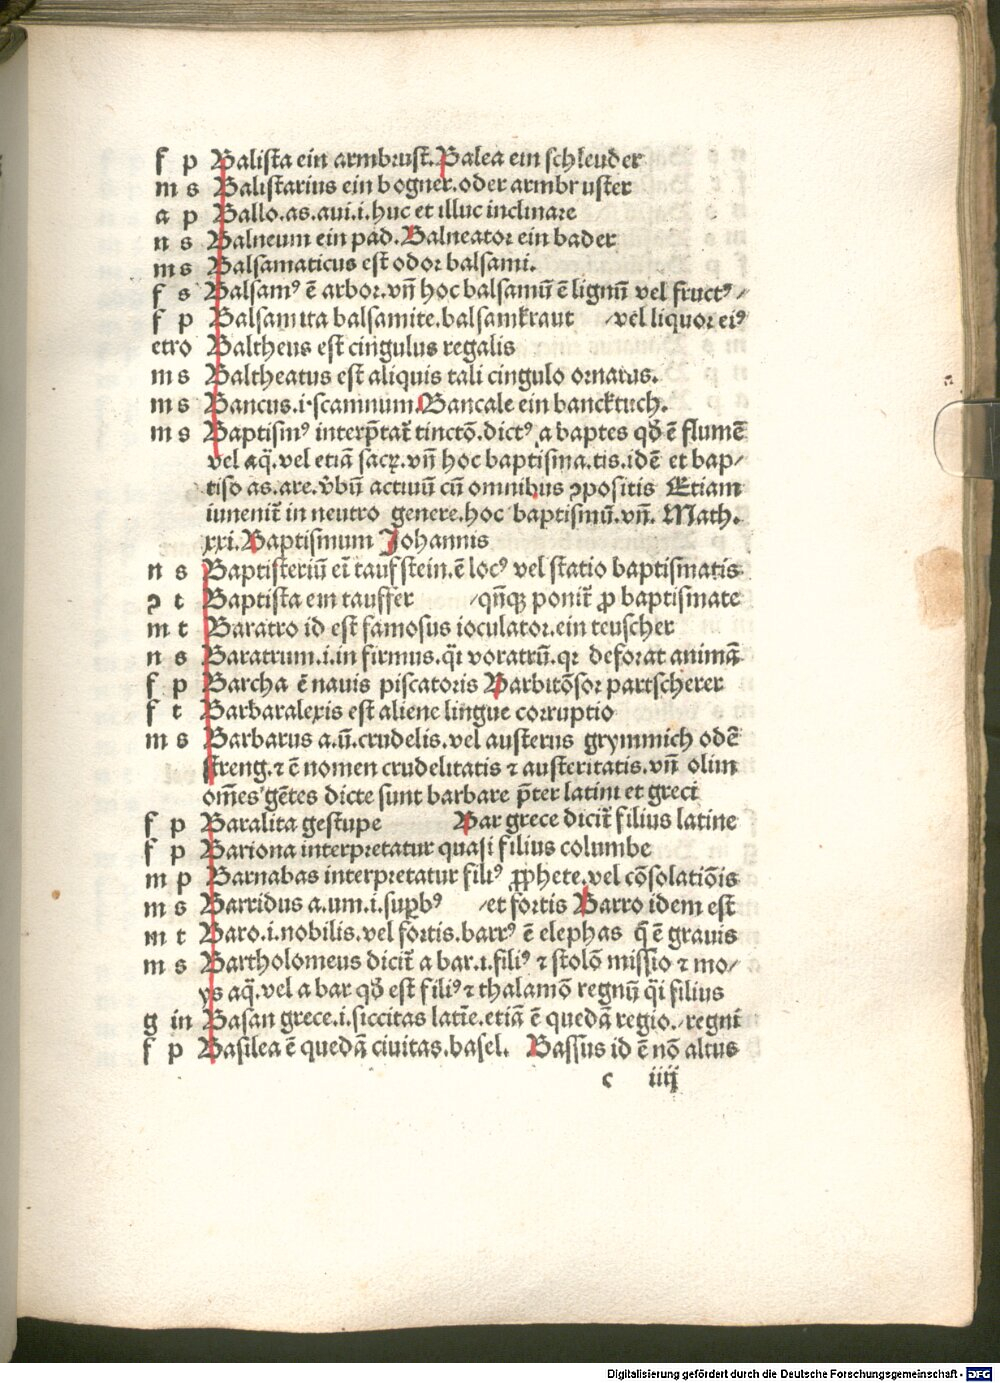 f p Balista ein armbrust. Balea ein schleuder
m s Balistarius ein bogner.oder armbruster
a p Ballo.as.aui.i.huc et illuc inclinare
n s Balneum ein pad. Balneator ein bader
m s Balsamaticus est odor balsami.
f s Balsamꝰ ē arbor.vñ hoc balsamū ē lignū vel fructꝰ⸗
f p Balsamita balsamite.balsamkraut ⸗vel liquor eiꝰ
etro Baltheus est cingulus regalis
m s Baltheatus est aliquis tali cingulo ornatus.
m s Bancus.i.scamnum. Bancale ein bancktuch.
m s Baptismꝰ interp̄tat̄ tinctō.dictꝰ a baptes qd̄ ē flumē
vel aq̄.vel etiā sacꝝ.vñ hoc baptisma.tis.idē et bap⸗
tiso as.are.v̄bū actiuū cū omnibus ꝯpositis Etiam
iuenit̄ in neutro genere.hoc baptismū.vñ. Math.
xxi. Baptismum Johannis
n s Baptisteriū ei taufstein.ē locꝰ vel statio baptismatis
ꝯ t Baptista ein tauffer ⸗qñqꝫ ponit̄ ꝓ baptismate
m t Baratro id est famosus ioculator.ein teuscher
n s Baratrum.i.infirmus.q̄i voratrū.qꝛ deforat animā
f p Barcha ē nauis piscatoris Barbitōsor partscherer
f t Barbaralexis est aliene lingue corruptio
m s Barbarus a.ū.crudelis.vel austerus grymmich odē
streng.⁊ ē nomen crudelitatis ⁊ austeritatis.vñ olim
om̄es gētes dicte sunt barbare p̄ter latini et greci
f p Baralita gestupe Bar grece dicit̄ filius latine
f p Bariona interpretatur quasi filius columbe
m p Barnabas interpretatur filiꝰ ꝓphete.vel cōsolatiōis
m s Barridus a.um.i.suꝑbꝰ ⸗et fortis Barro idem est
m t Baro.i.nobilis.vel fortis.barrꝰ ē elephas q̄ ē grauis
m s Bartholomeus dicit̄ a bar.i.filiꝰ ⁊ stolō missio ⁊ mo⸗
ys aq̄.vel a bar qd̄ est filiꝰ ⁊ thalamō regnū q̄i filius
g in Basan grece.i.siccitas latīe.etiā ē quedā regio.⸗regni
f p Basilea ē quedā ciuitas.basel. Bassus id ē nō altus
c iiij
Digitalisierung gefördert durch die Deutsche Forschungsgemeinschaft - DFG